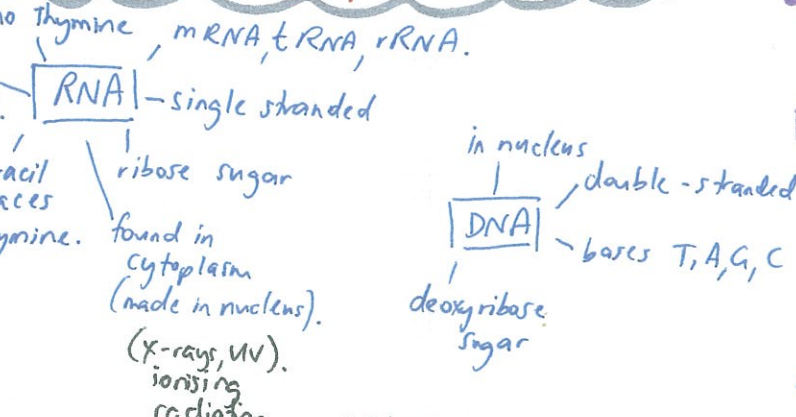 no Thymine
mRNA, tRNA, rRNA.
RNA
single stranded
ribose sugar
found in
cytoplasm
(made in nucleus).
(X-rays, UV).
ionising
in nucleus
double-stranded
DNA
bases T, A, G, C
deoxyribose
sugar